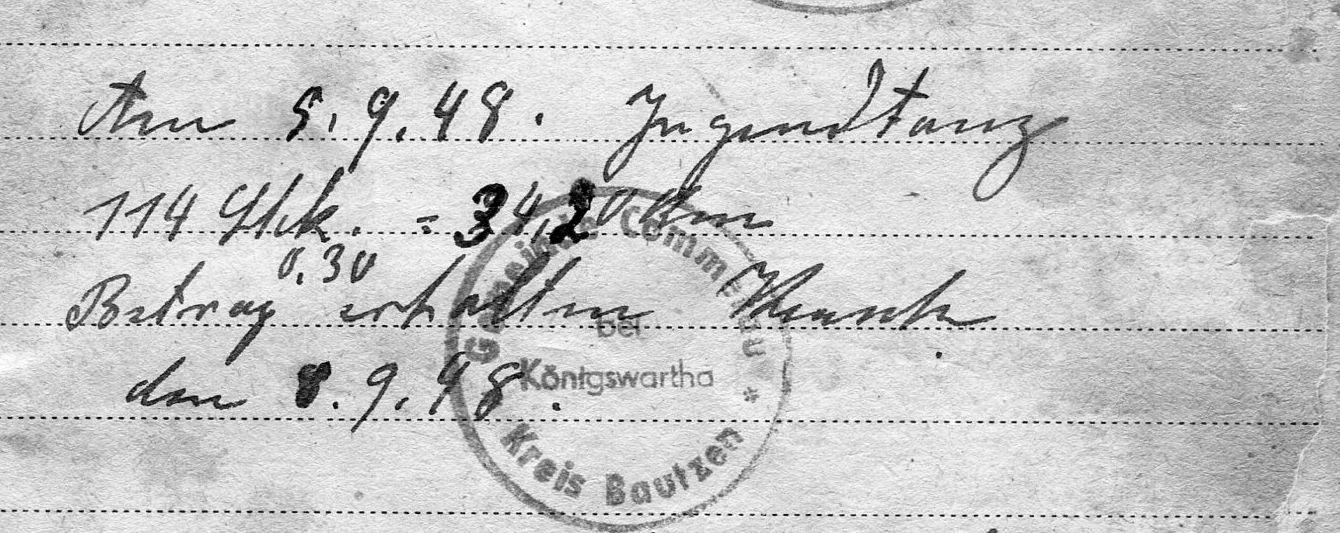 Am 5.9.48. Jugendtanz
114 Stck. = 34,20 Dm
0,30
Betrag erhalten
den 8.9.48.
Gemeinde Commerau
bei
Königswartha
* Kreis Bautzen